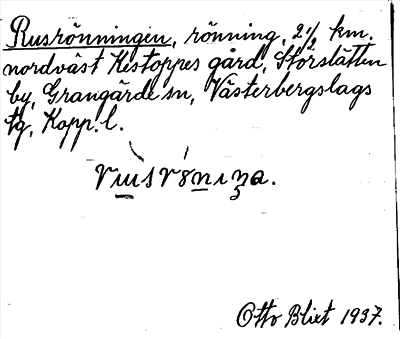 Rusrönningen, rönning, 2 1/2 km.
nordväst Kistoppes gård, Storslätten
by, Grangärde sn, Västerbergslags
tg, Kopp. l.
Otto Blixt 1937.